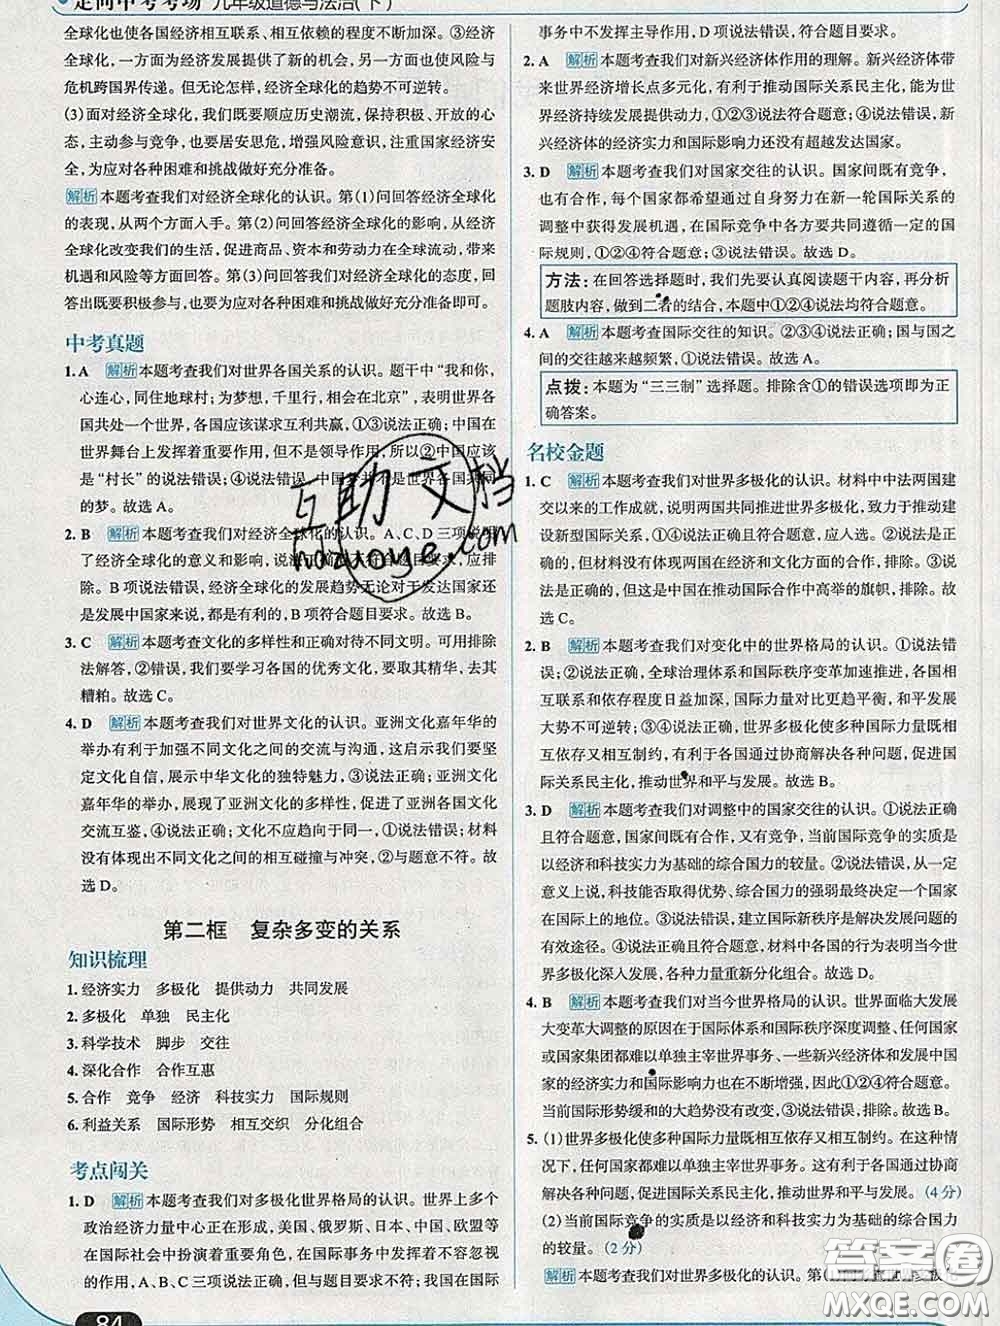 走向中考考场 九年级道德与法治(下)
全球化也使各国经济相互联系、相互依赖的程度不断加深。③经济
全球化,一方面为经济发展提供了新的机会,另一方面也使风险与
危机跨国界传递。但无论怎样,经济全球化的趋势不可逆转。
(3)面对经济全球化,我们既要顺应历史潮流,保持积极、开放的心
态,主动参与竞争,也要居安思危,增强风险意识,注重国家经济安
全,为应对各种困难和挑战做好充分准备。
解析 本题考查我们对经济全球化的认识。第(1)问回答经济全球化
的表现,从两个方面入手。第(2)问回答经济全球化的影响,从经济
全球化改变我们的生活,促进商品、资本和劳动力在全球流动,带来
机遇和风险等方面回答。第(3)问回答我们对经济全球化的态度,回
答出既要积极参与,也要为应对各种困难和挑战做好充分准备即可。
中考真题
1. A 解析 本题考查我们对世界各国关系的认识。题干中“我和你,
心连心,同住地球村;为梦想,千里行,相会在北京”,表明世界各
国共处一个世界,各国应该谋求互利共赢,①③说法正确;中国在
世界舞台上发挥着重要作用,但不是主导作用,所以②中国应该
是“村长”的说法错误;中国梦并不是世界各国共同
的梦。故选 A。
2. B 解析 本题考查我们对经济全球化的认识。A、C、D 三项说明
了经济全球化的意义和影响,说法正确但不符合题目要求,应排
除。B 项说法错误,经济全球化的发展趋势无论对于发达国家还
是发展中国家来说,都是有利的,B 项符合题目要求。故选 B。
3. C 解析 本题考查文化的多样性和正确对待不同文明。可用排除
法解答,②错误,我们要学习各国的优秀文化,要取其精华,去其
糟粕。故选 C。
4. D 解析 本题考查我们对世界文化的认识。亚洲文化嘉年华的
举办有利于加强不同文化之间的交流与沟通,这启示我们要坚
定文化自信,展示中华文化的独特魅力,③说法正确;亚洲文化
嘉年华的举办,展现了亚洲文化的多样性,促进了各国文化之间的
交流互鉴,④说法正确;文化不应趋向于同一,①说法错误;材料
没有体现出不同文化之间的相互碰撞与冲突,②与题意不符。故
选 D。
第二框 复杂多变的关系
知识梳理
1. 经济实力 多极化 提供动力 共同发展
2. 多极化 单独 民主化
3. 科学技术 脚步 交往
4. 深化合作 合作互惠
5. 合作 竞争 经济 科技实力 国际规则
6. 利益关系 国际形势 相互交织 分化组合
考点闯关
1. D 解析 本题考查我们对多极化世界格局的认识。世界上多个
政治经济力量中心正在形成,美国、俄罗斯、日本、中国、欧盟等
在国际社会中扮演着重要角色,在国际事务中发挥着不容忽视
的作用,A、B、C 三项说法正确但与题目要求不符;我国在国际
84
事务中不发挥主导作用,D 项说法错误,符合题目要求。
2. A 解析 本题考查对新兴经济体作用的理解。新兴经济体带
来世界经济增长点多元化,有利于推动国际关系民主化,能为世
界经济持续发展提供动力,①②③说法符合题意;④说法错误,新
兴经济体的经济力量和国际影响力还没有超越发达国家。
3. D 解析 本题考查我们对国家交往的认识。国家间既有竞争,
也有合作,每个国家都希望通过自身努力在新一轮国际关系的
调整中获得发展机遇,在国际竞争中各方要共同遵循一定的国
际规则,①②④符合题意;③说法错误。故选 D。
方法:在回答选择题时,我们先要认真阅读题干内容,再分析
题肢内容,做到二者的结合,本题中①②④说法均符合题意。
4. A 解析 本题考查国际交往的知识。②③④说法正确;国与国之
间的交往越来越频繁,①说法错误。故选 A。
点拨:本题为“三三制”选择题。排除含①的错误选项即为正
确答案。
名校金题
1. C 解析 本题考查我们对世界多极化的认识。材料中中法两国建
交以来的工作成就,说明两国共同推进世界多极化,致力于推动建
设新型国际关系,①④说法正确且符合题意,应入选。②说法是正
确的,但材料没有体现两国在经济和文化方面的合作,排除。③说
法是正确的,但这是中国在推动国际合作中高举的旗帜,排除。故
选 C。
2. B 解析 本题考查我们对变化中的世界格局的认识。①说法错
误;②说法正确,全球治理体系和国际秩序变革加速推进,各国相
互联系和依存程度日益加深,国际力量对比更趋平衡,和平发展
大势不可逆转;③④说法正确,世界多极化使多种国际力量既相
互依存又相互制约,有利于各国通过协商解决各种问题,促进国
际关系民主化,推动世界和平与发展。故选 B。
3. D 解析 本题考查我们对调整中的国家交往的认识。①说法正确
且符合题意,国家间既有合作,又有竞争,当前国际竞争的实质是
以经济和科技实力为基础的综合国力的较量。②说法错误,从一定
意义上说,科技能否取得优势、综合国力的强弱最终决定一个国家
在国际上的地位。③说法错误,建立国际新秩序是解决发展问题的
有效途径。④说法正确且符合题意,材料中各国的行为表明当今世
界多极化深入发展,各种力量重新分化组合。故选 D。
4. B 解析 本题考查我们对当今世界格局的认识。世界面临大发展
大变革大调整的原因在于国际体系和国际秩序深度调整、任何国家
或国家集团都难以单独主宰世界事务、一些新兴经济体和发展中国
家的经济实力和国际影响力也在不断增强,因此①②④符合题意。
当前国际形势缓和的大趋势没有改变,③说法错误。故选 B。
5. (1)世界多极化使多种国际力量既相互依存又相互制约。在这种情
况下,任何国家都难以单独主宰世界事务。这有利于各国通过协商
解决各种问题,促进国际关系民主化,推动世界和平与发展。(4 分)
(2)当前国际竞争的实质是以经济和科技实力为基础的综合国力
的较量。(2 分)
解析 本题考查我们对世界多极化的认识。第(1)
互助文档
hdzuoye.com
答案圈
MXQE.COM